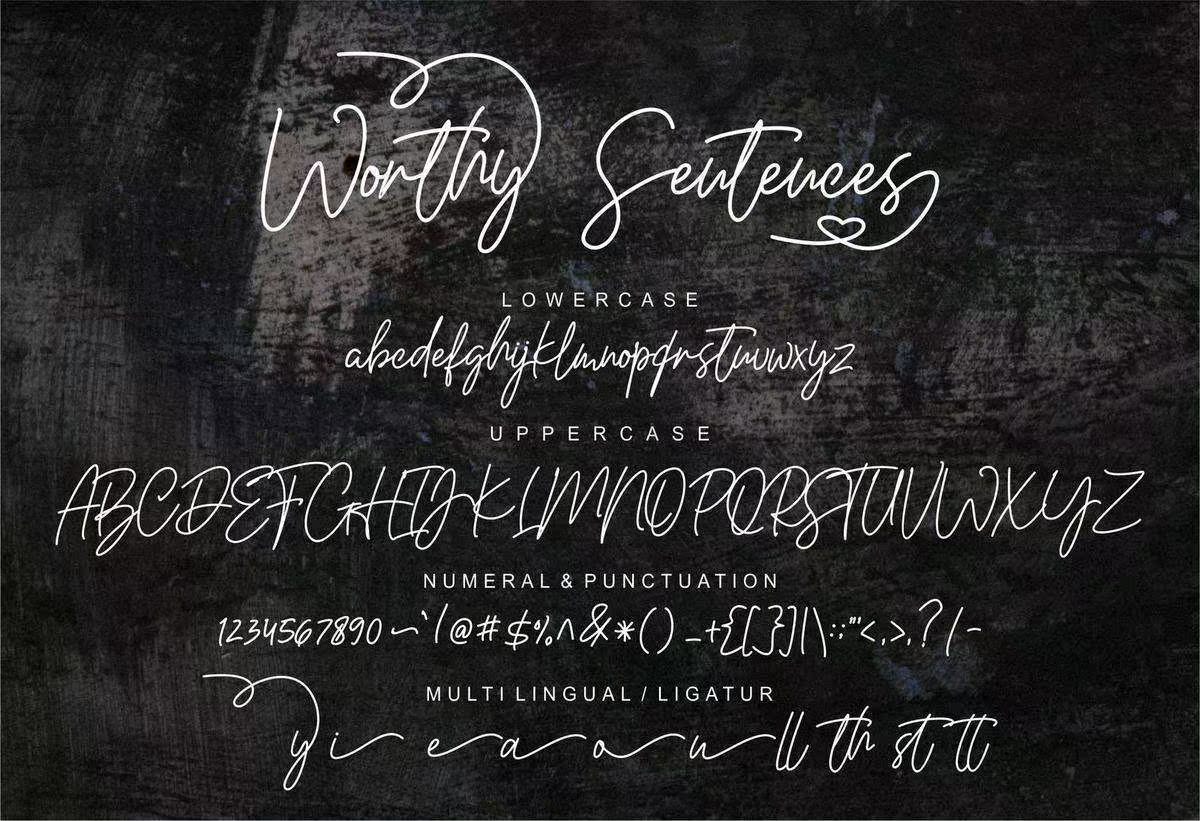 Worthy Sentences
LOWERCASE
abcdefghijklmnopqrstuvwxyz
UPPERCASE
ABCDEFGHIJKLMNOPQRSTUVWXYZ
NUMERAL & PUNCTUATION
1234567890 ~`!@#$%^&*()_+{[}]|\:;"'<,>.?/-
MULTI LINGUAL / LIGATUR
y i e a o u ll th st tt